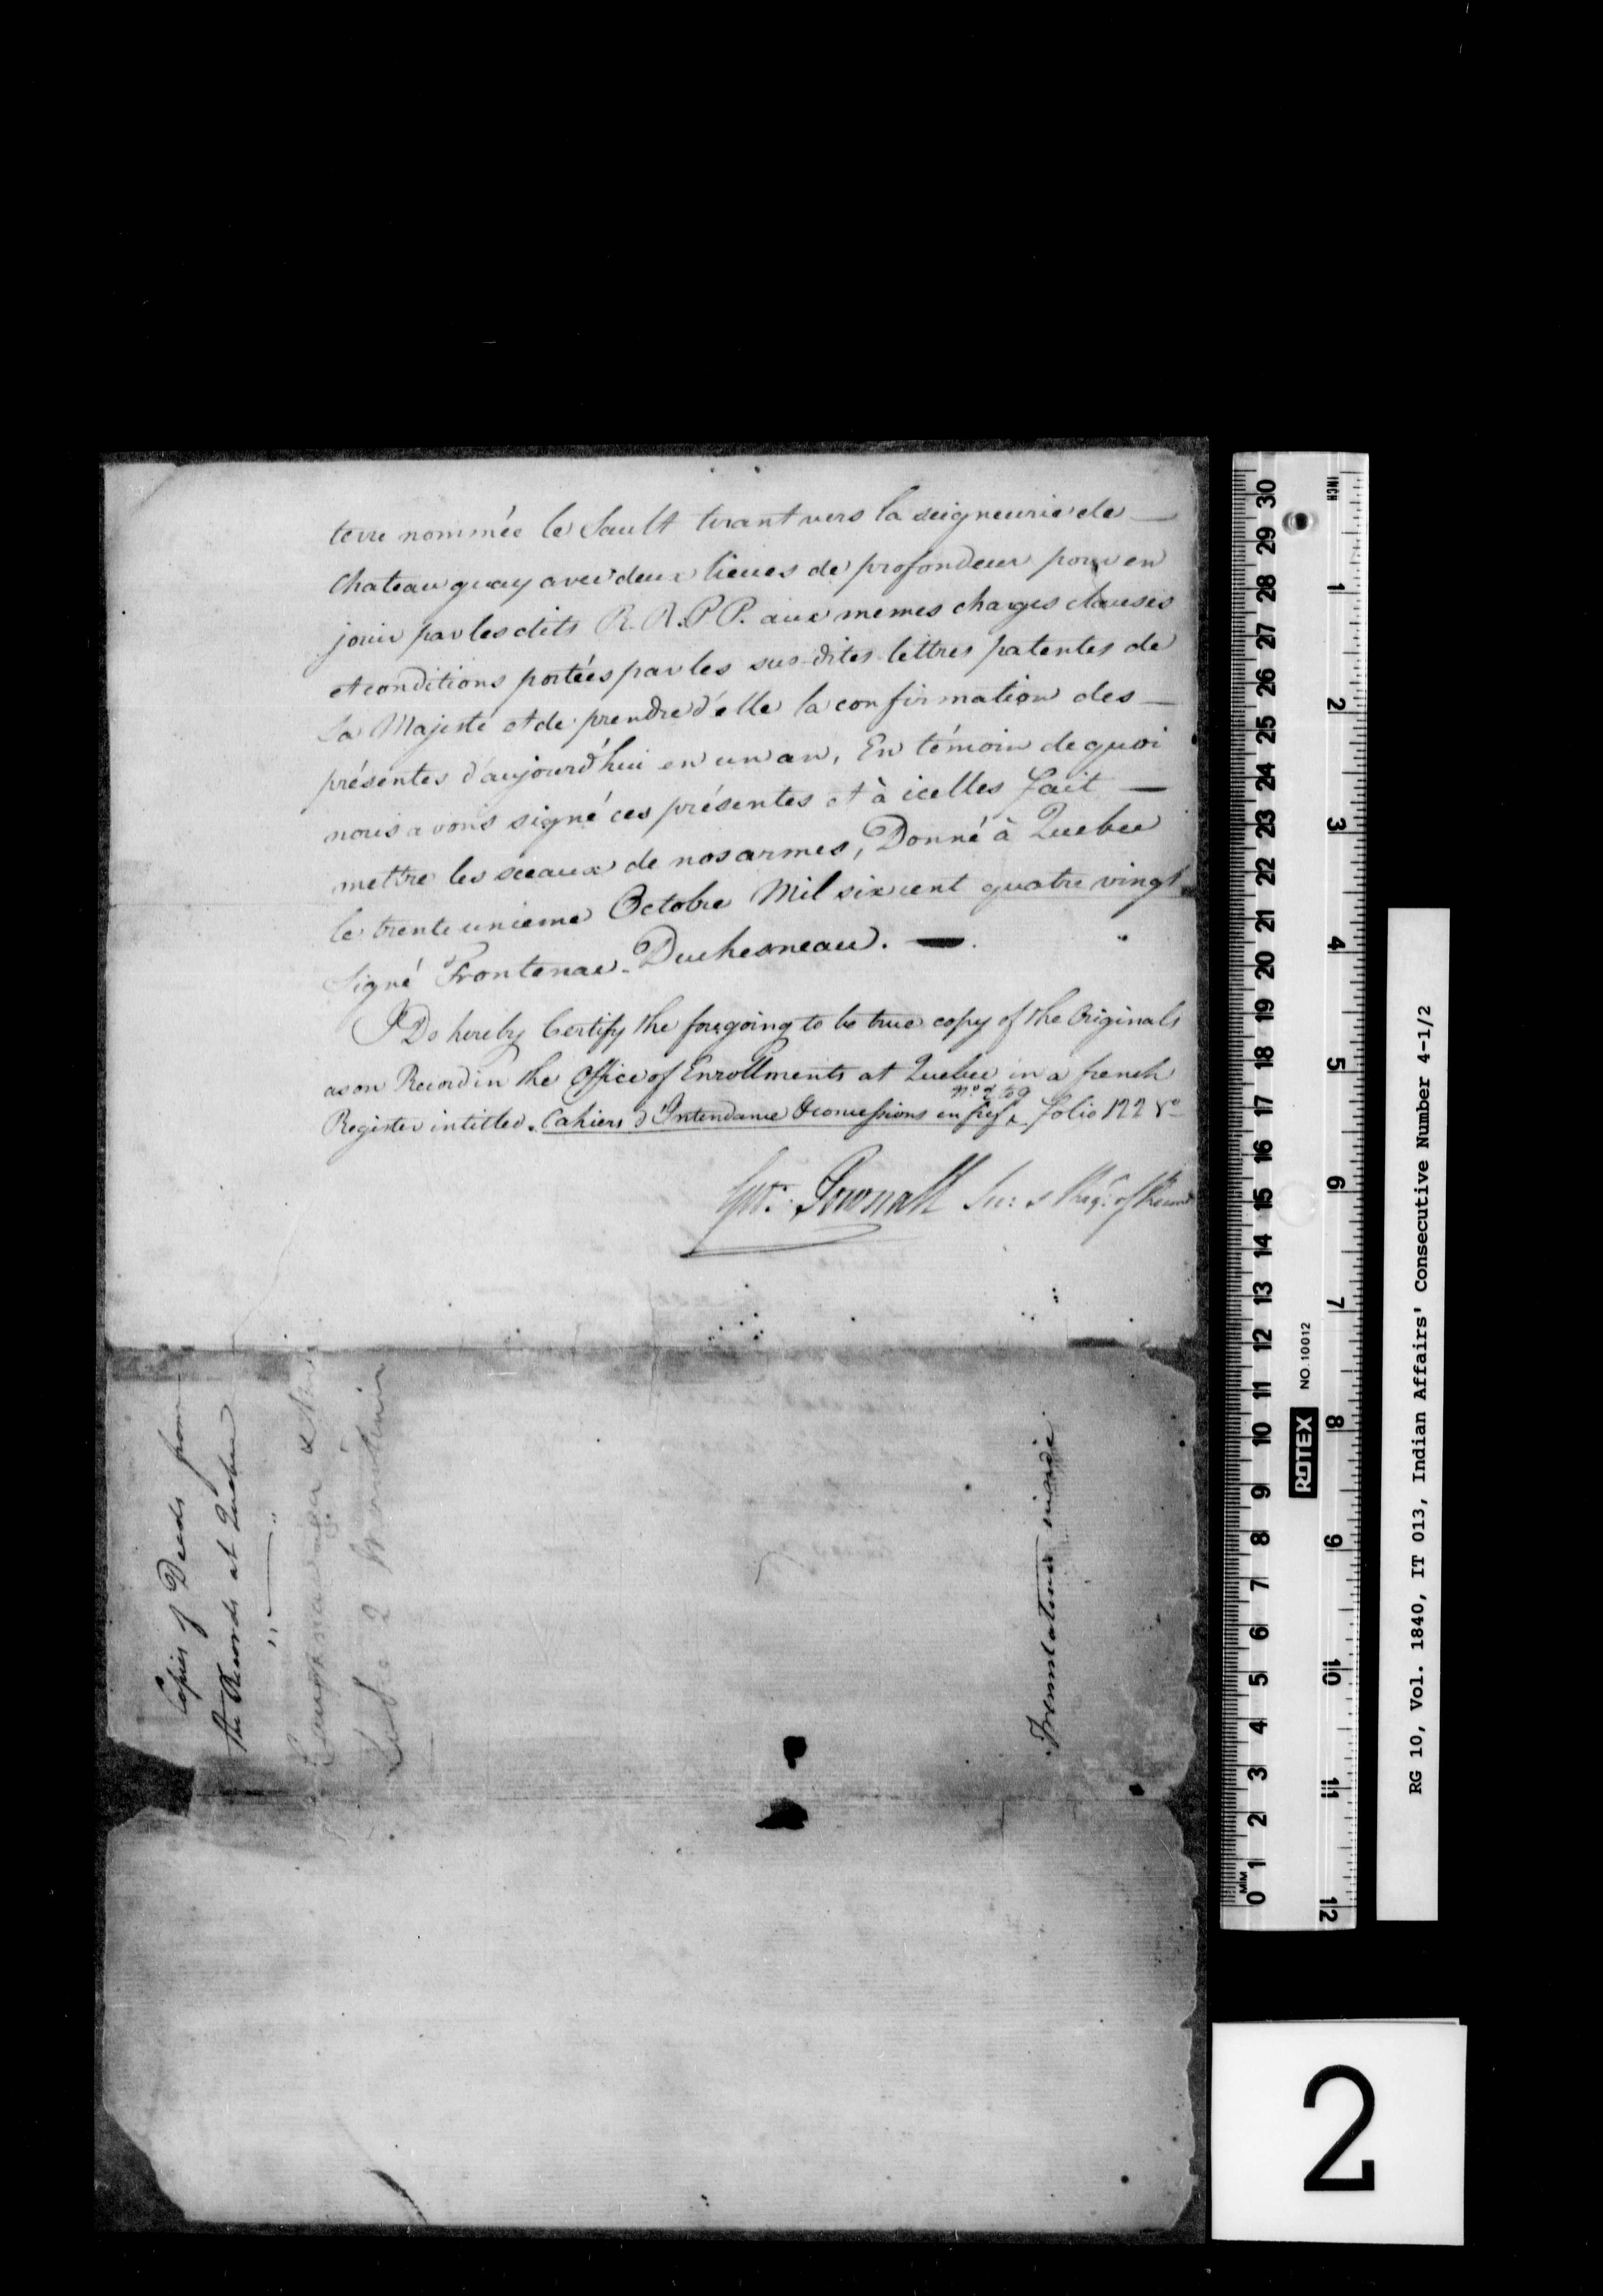 terre nommée le Sault tirant vers la seigneurie de —
Chateauguay avec deux lieues de profondeur pour en
jouir par les dits R. R. P P. aux memes charges clauses
et conditions portées par les sus-dites lettres patentes de
Sa Majesté et de prendre d'elle la confirmation des —
présentes d'aujourd'hui en un an, En témoin de quoi
nous avons signé ces présentes et à icelles fait —
mettre les sceaux de nos armes, Donné à Quebec
le trente unieme Octobre Mil six cent quatre vingt
Signé Frontenac. Duchesneau. —
I Do hereby Certify the foregoing to be true copy of the Originals
as on Record in the Office of Enrollments at Quebec in a french
Register intitled. Cahiers d'Intendance & concessions en fief folio 122 vo
Geo: Pownall Sec: & Reg: of Records
Copies of Deeds from
the Records at Quebec
2
Translations inside
INCH
1 2 3 4 5 6 7 8 9 10 11 12
30 29 28 27 26 25 24 23 22 21 20 19 18 17 16 15 14 13 12 11 10 9 8 7 6 5 4 3 2 1 0
MM
ROTEX NO. 10012
RG 10, Vol. 1840, IT 013, Indian Affairs' Consecutive Number 4-1/2
2